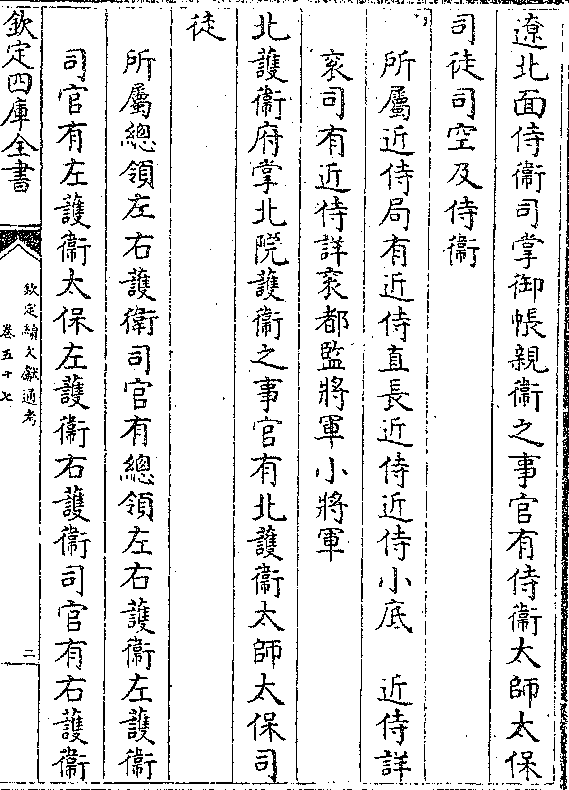 遼北面侍衞司掌御帳親衞之事官有侍衞太師太保
司徒司空及侍衞
所屬近侍局有近侍直長近侍近侍小底　近侍詳
衮司有近侍詳衮都監將軍小將軍
北護衞府掌北院護衞之事官有北護衞太師太保司
徒
所屬總領左右護衛司官有總領左右護衞左護衞
司官有左護衞太保左護衞右護衞司官有右護衞
欽定四庫全書
欽定續文獻通考
卷五十七
二